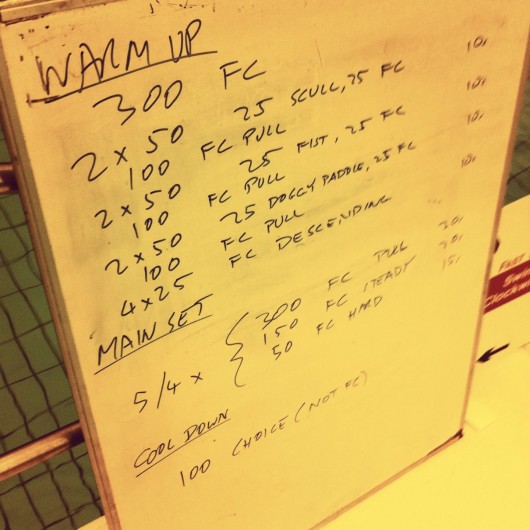 WARM UP
300 FC
2 x 50 25 SCULL, 25 FC 10,
100 FC PULL
2 x 50 25 FIST, 25 FC 10,
100 FC PULL
2 x 50 25 DOGGY PADDLE, 25 FC 10,
100 FC PULL
4 x 25 FC DESCENDING 10,
MAIN SET
300 FC PULL
5/4 x { 150 FC STEADY
50 FC HARD 15,
COOL DOWN
100 CHOICE (NOT FC)
FAST